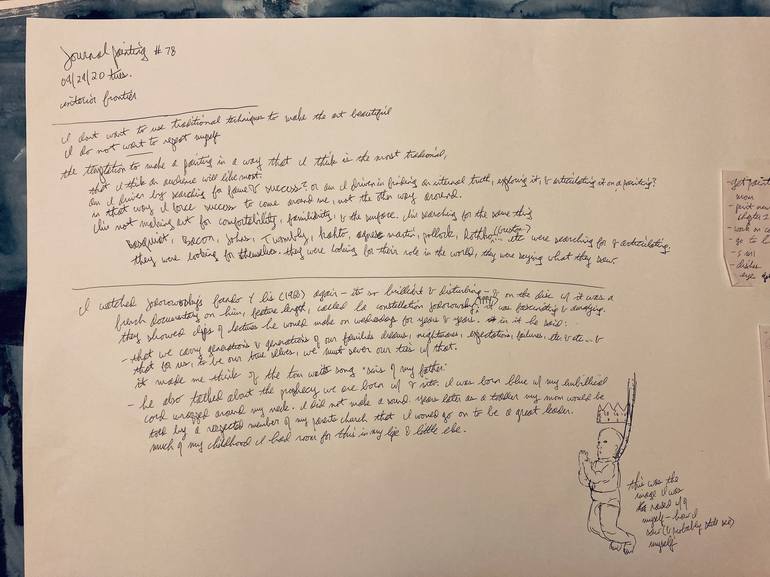 Journal painting #78
09/29/20 tues.
interior frontier
I dont want to use traditional techniques to make the art beautiful
I do not want to repeat myself
the temptation to make a painting in a way that I think is the most tradional,
that I think an audience will like most.
am I driven by searching for fame & success? or am I driven in finding an internal truth, exploring it, & articulating it on a painting?
in that way I force success to come around me, not the other way around.
I'm not making art for comfortability, familiarity, & the surface. I'm searching for the same thing
Basquiat, Bacon, Johns, Twombly, agnes martin, pollock, Rothko, (Guston) etc were searching for & articulating.
they were looking for themselves. they were looking for their role in the world, they were saying what they saw.
I watched Jodorowsky's fando & lis (1968) again - its so brilliant & disturbing - & on the disc w/ it was a
french documentary on him, feature length, called la constellation Jodorowsky (1994), it was fascinating & amazing.
they showed clips of lectures he would make on wednesdays for years & years. in it he said:
- that we carry generations & generations of our families dreams, nightmares, expectations, failures, etc. & etc... &
that for us, to be our true selves, we must sever our ties w/ that.
it made me think of the tom waits song "sins of my father"
- he also talked about the prophecy we are born w/ & into. I was born blue w/ my umbilical
cord wrapped around my neck. I did not make a sound. years later as a toddler my mom would be
told by a respected member of my parents church that I would go on to be a great leader.
much of my childhood I had room for this in my life & little else.
this was the
image I was
raised w/
myself - how I
saw (& probably still see)
myself
- get paint
- work on
- go to
- dishes